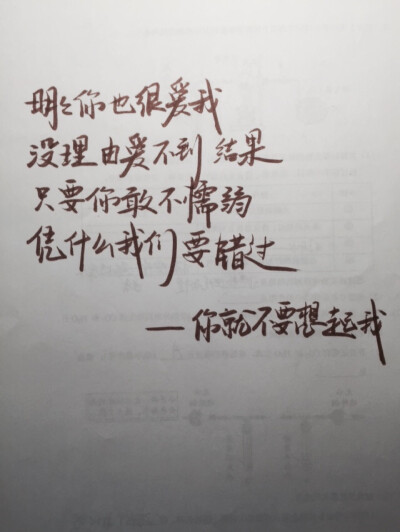 明明你也很爱我
没理由爱不到结果
只要你敢不懦弱
凭什么我们要错过
—你就不要想起我